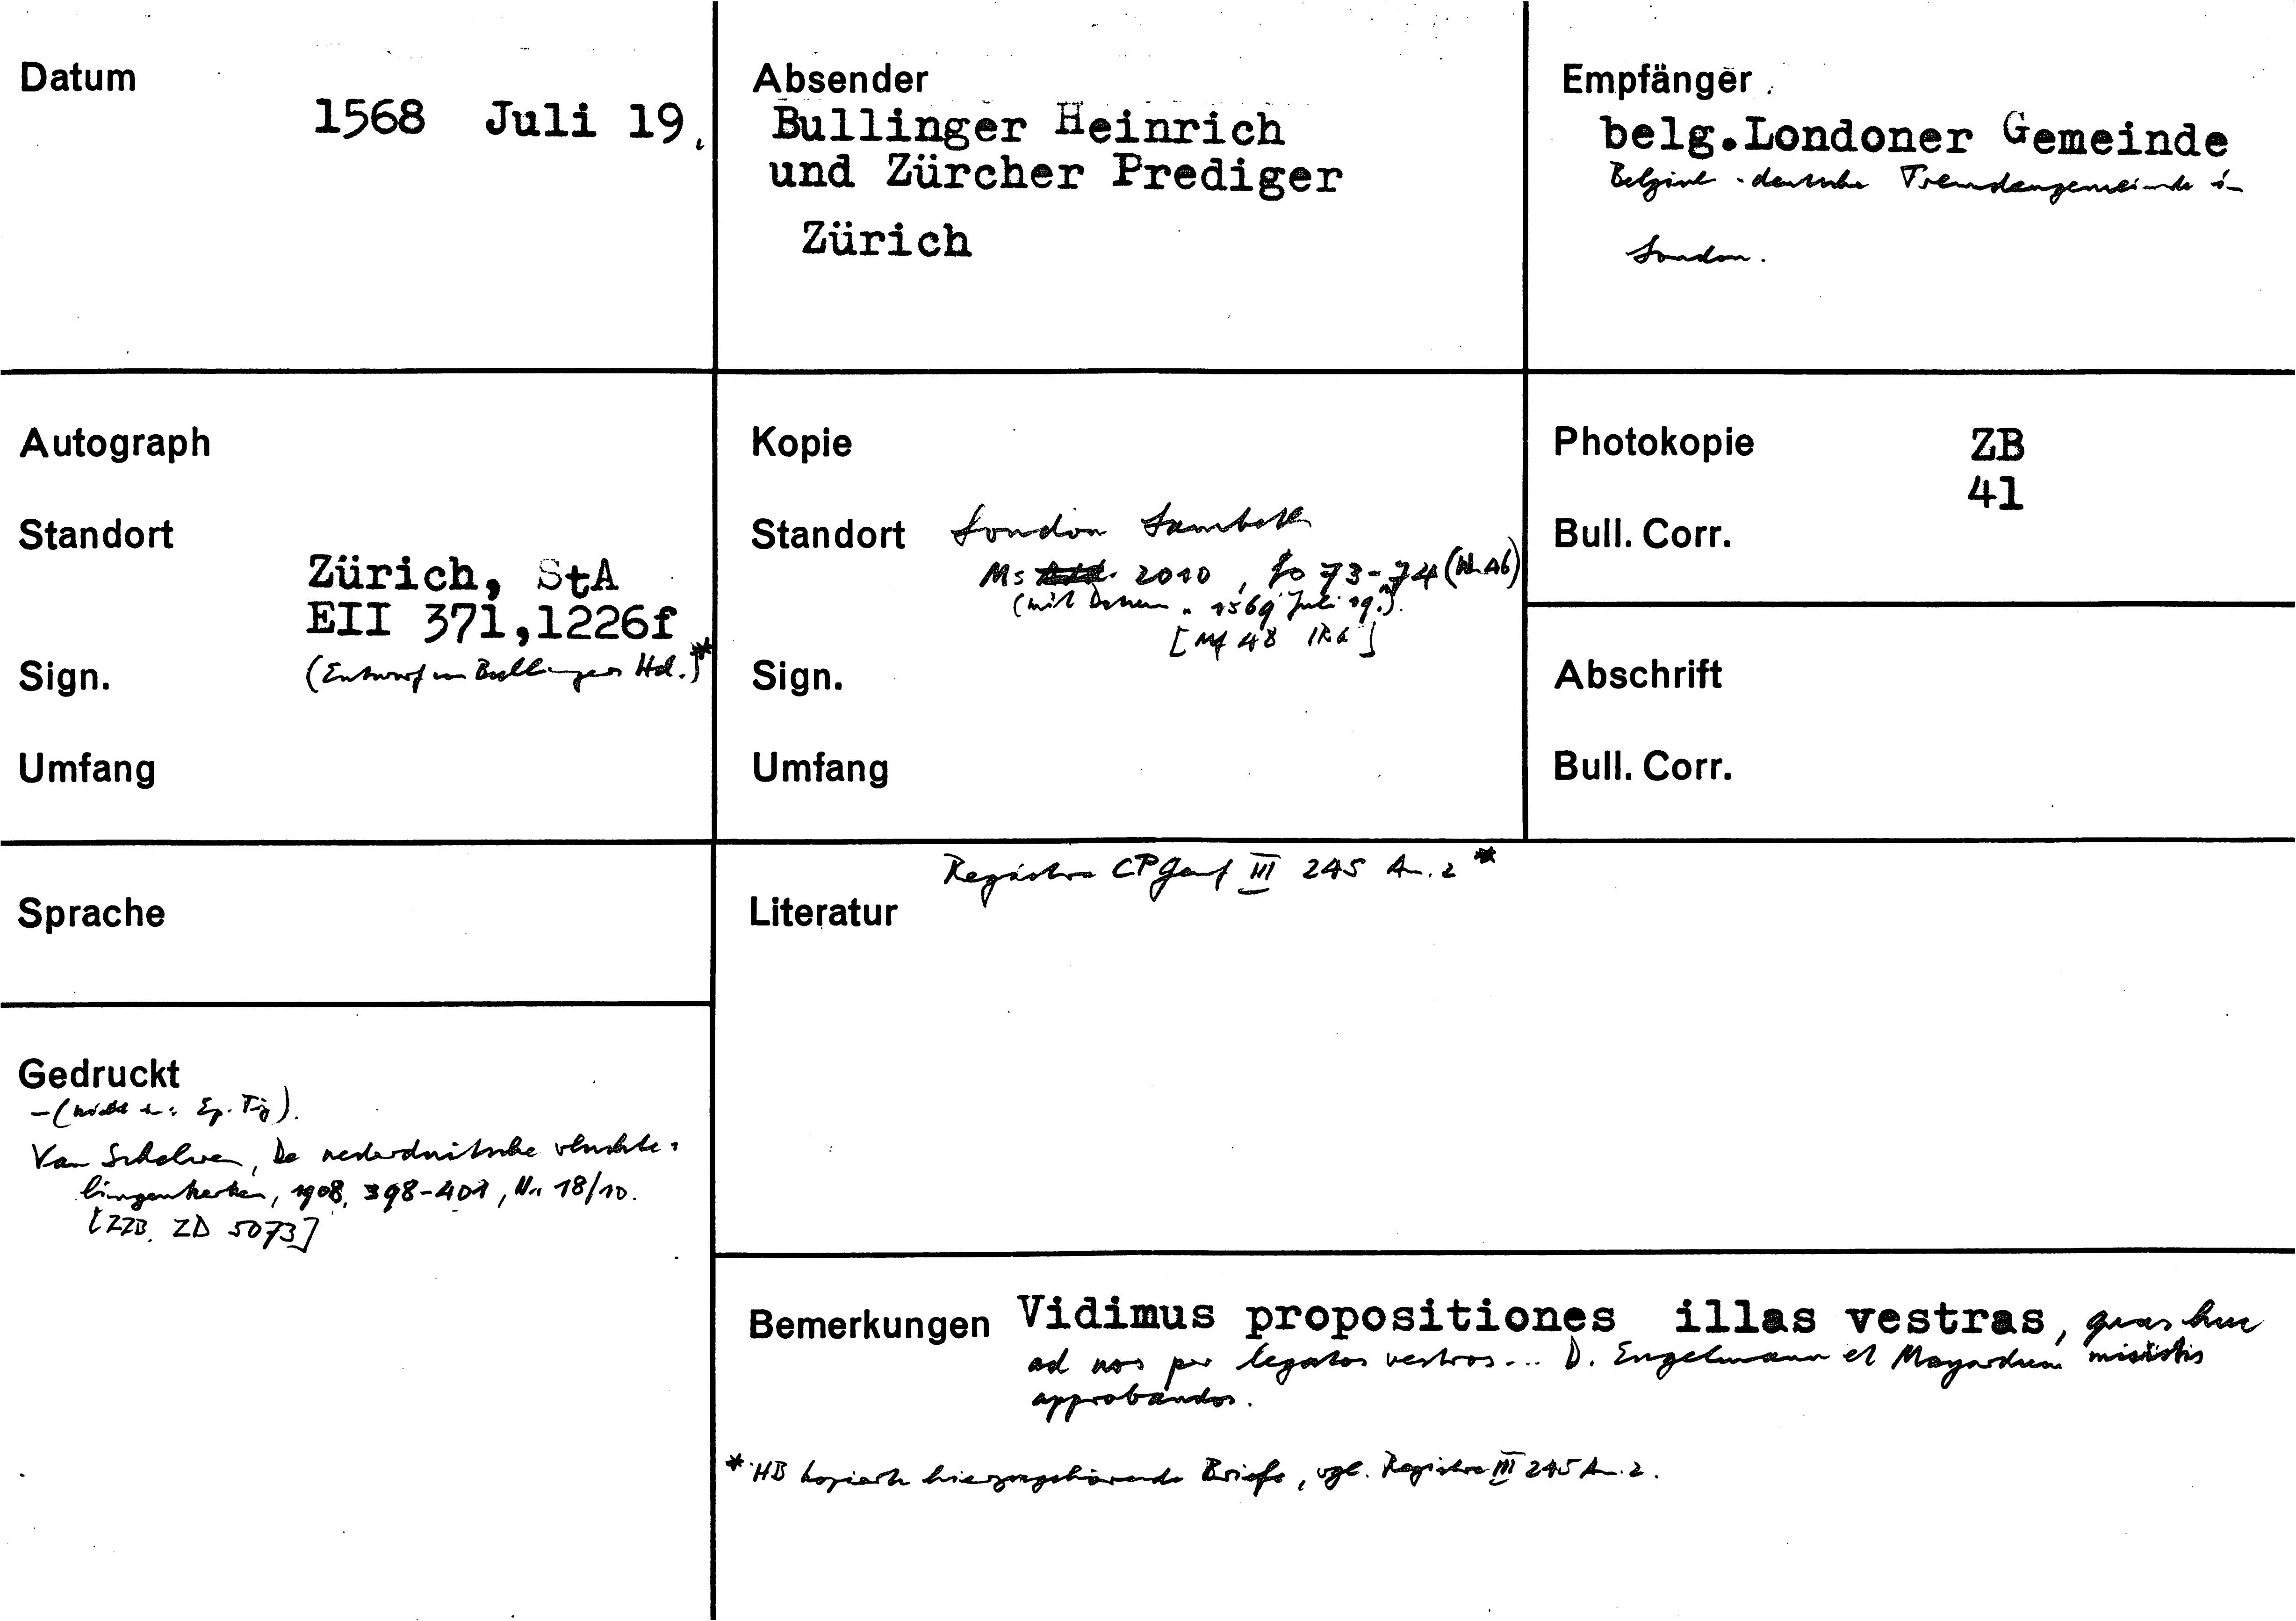 Datum
1568 Juli 19.
Absender
Bullinger Heinrich
und Zürcher Prediger
Zürich
Empfänger
belg.Londoner Gemeinde
Belgisch-deutsche Fremdengemeinde in
London.
Autograph
Standort
Zürich, StA
EII 371,1226f
Sign.
(Entwurf von Bullingers Hd.)*
Umfang
Kopie
Standort London Lambeth
Ms 2010, fo 73-74 (Nr. 46)
(mit Datum "1569 Juli 19.").
[Mf 48 IRG]
Sign.
Umfang
Photokopie ZB
41
Bull. Corr.
Abschrift
Bull. Corr.
Sprache
Registres CP Genf III 245 An. 2 *
Literatur
Gedruckt
- (nicht in: Ep. Tig).
Van Schelven, De nederduitsche vluchte=
lingenkerken, 1908, 398-401, Nr. 18/10.
[ZZB. ZD 5073]
Bemerkungen Vidimus propositiones illas vestras, quas huc
ad nos per legatos vestros ... D. Engelmann et Mayardum misistis
approbandos.
* HB kopierte hierzugehörende Briefe, vgl. Registres III 245 An. 2.